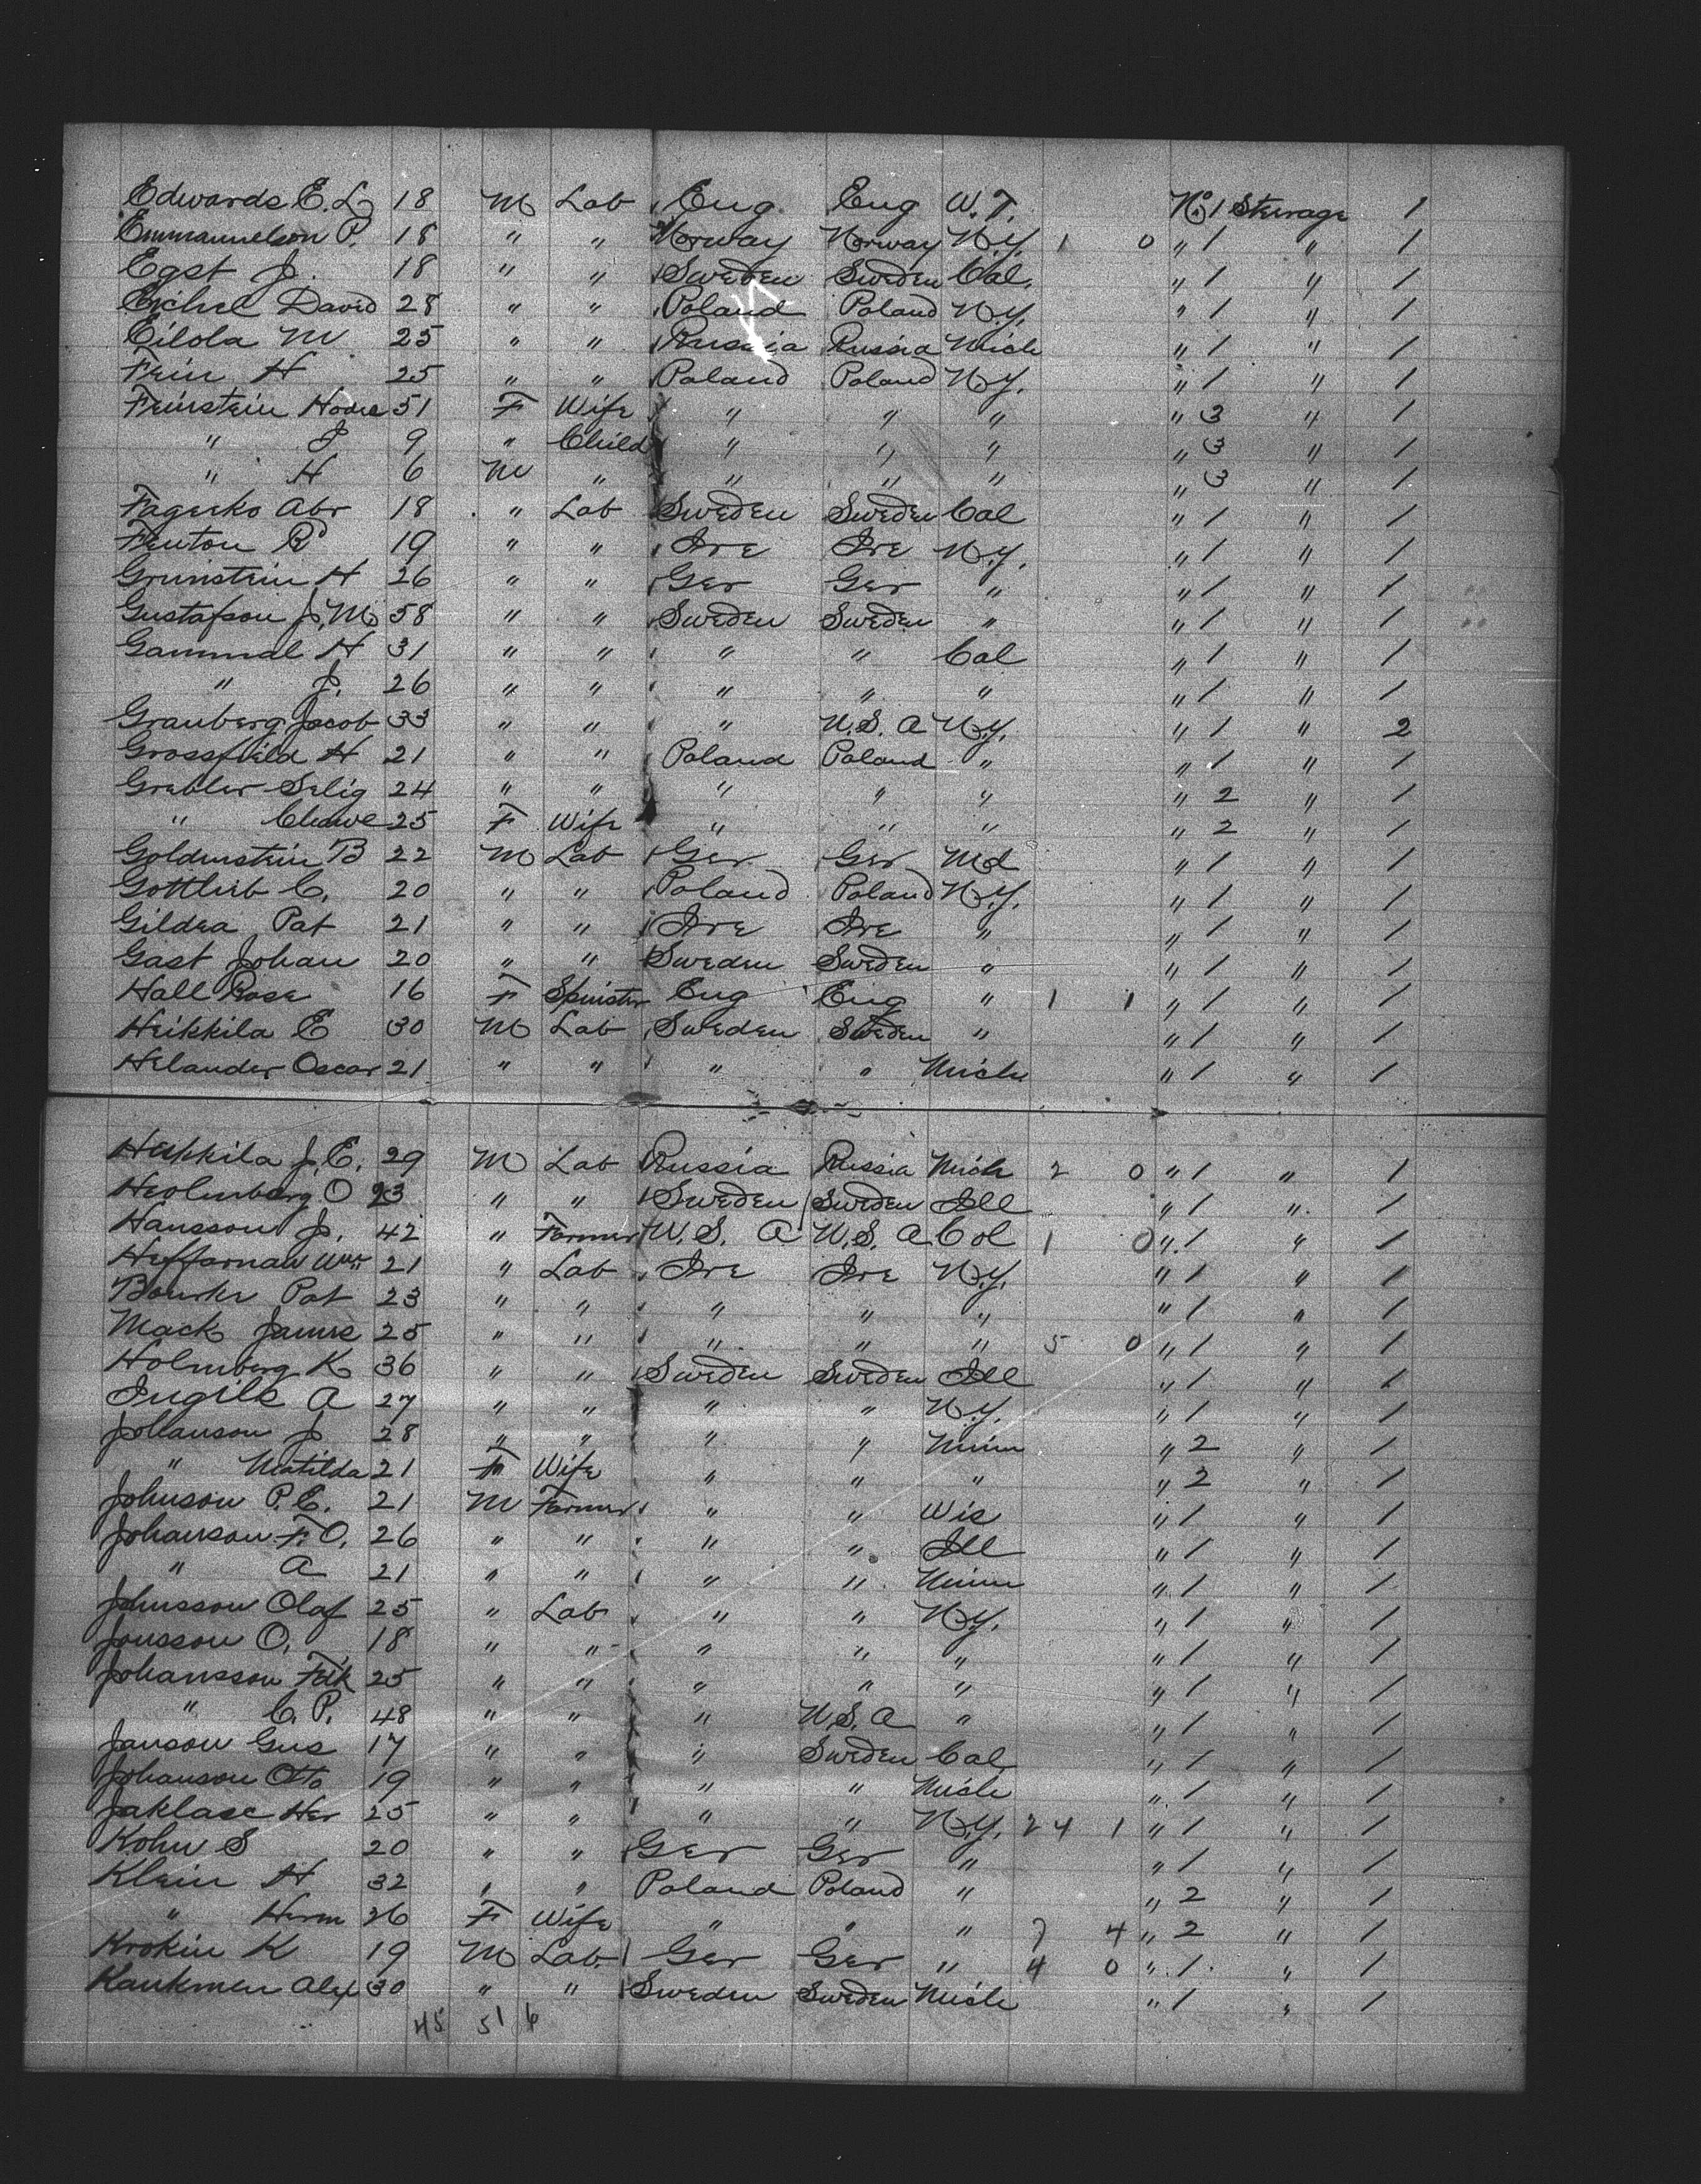 Edwards E. L 18 M Lab Eng Eng W. T. No. 1 Steerage 1
Emmanuelson P. 18 " " Norway Norway N.Y. 1 0 " 1 " 1
Egst J. 18 " " Sweden Sweden Cal. " 1 " 1
Eichel David 28 " " Poland Poland N.Y. " 1 " 1
Eilola M 25 " " Russia Russia Mich " 1 " 1
Fein H 25 " " Poland Poland N.Y. " 1 " 1
Feinstein Hodie 51 F Wife " " " " 3 " 1
" J 9 " Child " " " " 3 " 1
" H 6 M " " " " " 3 " 1
Fagerko Abr 18 " Lab Sweden Sweden Cal " 1 " 1
Fenton R 19 " " Ire Ire N.Y. " 1 " 1
Grunstein H 26 " " Ger Ger " " 1 " 1
Gustafson J. M 58 " " Sweden Sweden " " 1 " 1
Gammal H 31 " " " " Cal " 1 " 1
" J. 26 " " " " " " 1 " 1
Granberg Jacob 33 " " " U.S. A N.Y. " 1 " 2
Grossfeild H 21 " " Poland Poland " " 1 " 1
Grebler Selig 24 " " " " " " 2 " 1
" Chawe 25 F Wife " " " " 2 " 1
Goldenstein B 22 M Lab Ger Ger Md " 1 " 1
Gottlieb C. 20 " " Poland Poland N.Y. " 1 " 1
Gildea Pat 21 " " Ire Ire " " 1 " 1
Gast Johan 20 " " Sweden Sweden " " 1 " 1
Hall Rose 16 F Spinster Eng Eng " 1 1 " 1 " 1
Heikkila E 30 M Lab Sweden Sweden " " 1 " 1
Helander Oscar 21 " " " " Mich " 1 " 1
Heikkila J. E. 29 M Lab Russia Russia Mich 2 0 " 1 " 1
Heolmberg O 23 " " Sweden Sweden Ill " 1 " 1
Hansson J. 42 " Farmer U.S. A U.S. A Col 1 0 " 1 " 1
Heffarnan Wm 21 " Lab Ire Ire N.Y. " 1 " 1
Bourke Pat 23 " " " " " " 1 " 1
Mack James 25 " " " " " 5 0 " 1 " 1
Holmberg K 36 " " Sweden Sweden Ill " 1 " 1
Ingils A 27 " " " " N.Y. " 1 " 1
Johanson J 28 " " " " Minn " 2 " 1
" Matilda 21 F Wife " " " " 2 " 1
Johnson P. C. 21 M Farmer " " Wis " 1 " 1
Johanson F. O. 26 " " " " Ill " 1 " 1
" A 21 " " " " Minn " 1 " 1
Johnsson Olaf 25 " Lab " " N.Y. " 1 " 1
Jonsson O. 18 " " " " " " 1 " 1
Johansson Fdk 25 " " " " " " 1 " 1
" C. P. 48 " " " U.S. A " " 1 " 1
Janson Gus 17 " " " Sweden Cal " 1 " 1
Johanson Otto 19 " " " " Mich " 1 " 1
Jaklase Her 25 " " " " N.Y. 24 1 " 1 " 1
Kohn S 20 " " Ger Ger " " 1 " 1
Klein H 32 " " Poland Poland " " 2 " 1
" Herm 26 F Wife " " " 7 4 " 2 " 1
Krokin K 19 M Lab Ger Ger " 4 0 " 1 " 1
Kaukmen Alex 30 " " Sweden Sweden Mich " 1 " 1
45 51 6